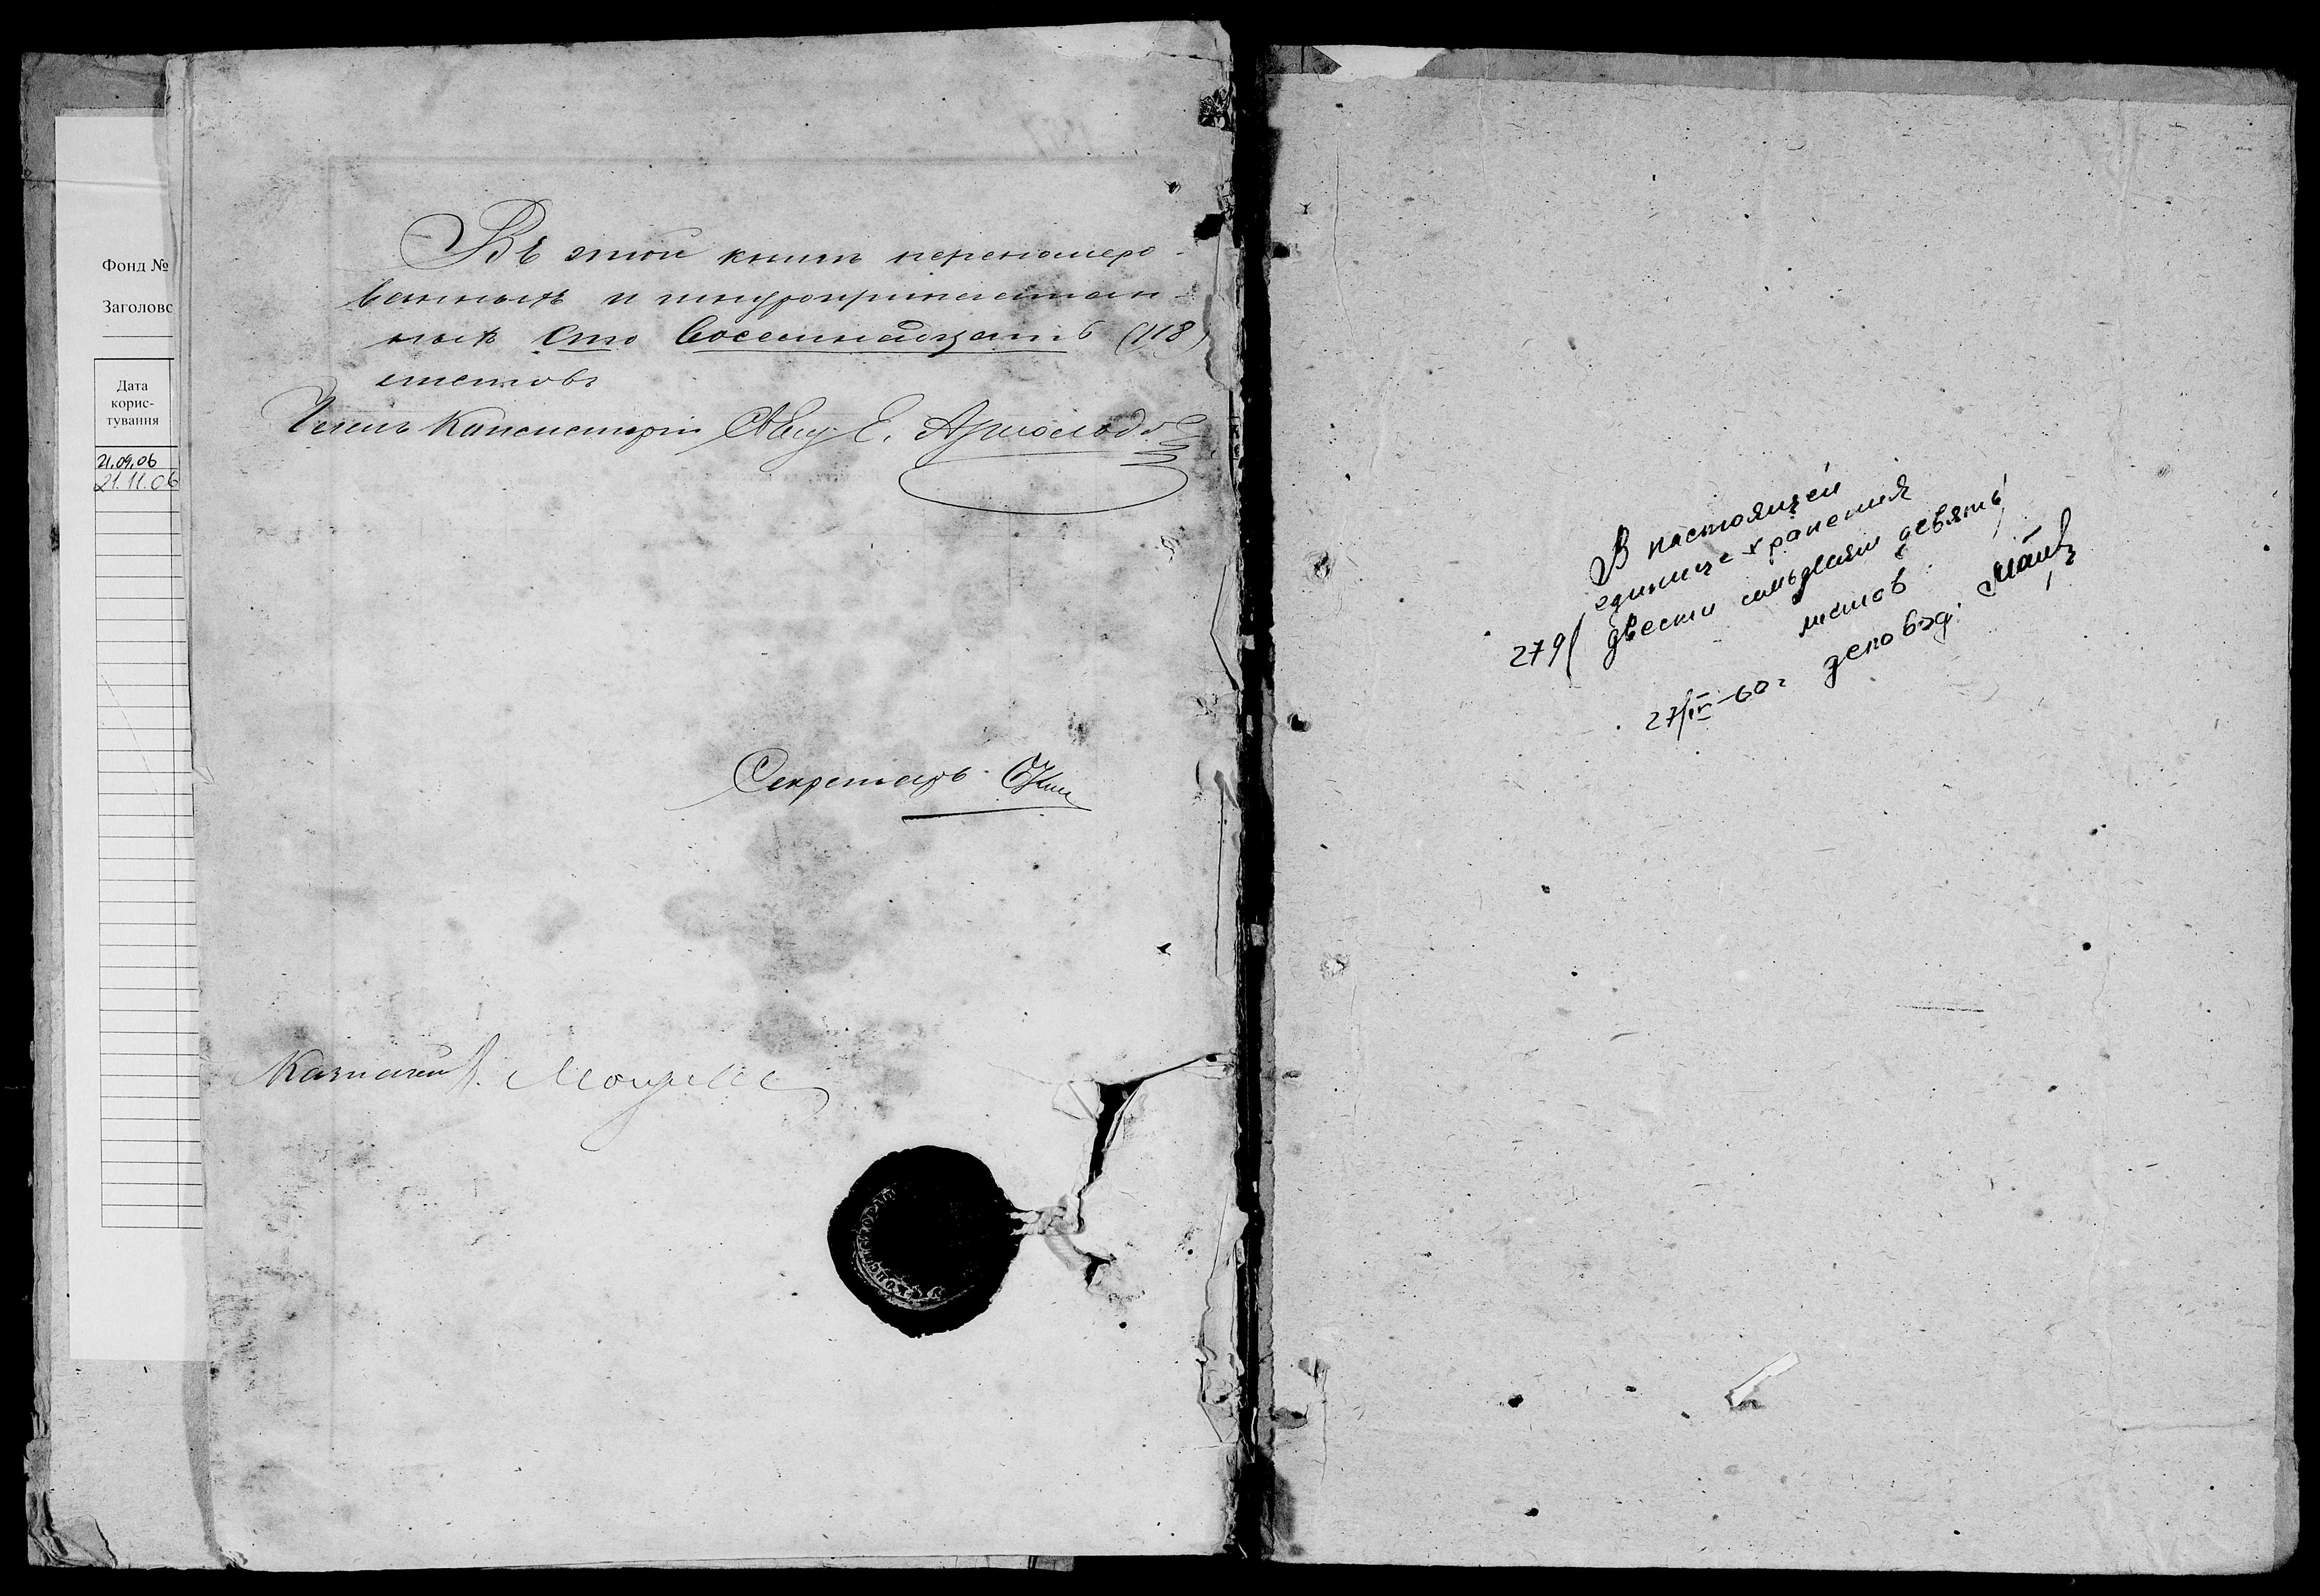 Фонд №
Заголовс
Дата
корис-
тування
21.09.06
21.11.06
Въ этой книгѣ перенумеро-
ванныхъ и шнуроприпечатан-
ныхъ сто восемнадцать (118)
листовъ
Членъ Консисторіи Свящ. Е.
Секретарь
Казначей
В настоящей
единице хранения
279/ двести семьдесят девять/
листов
27/IV-60г деловод